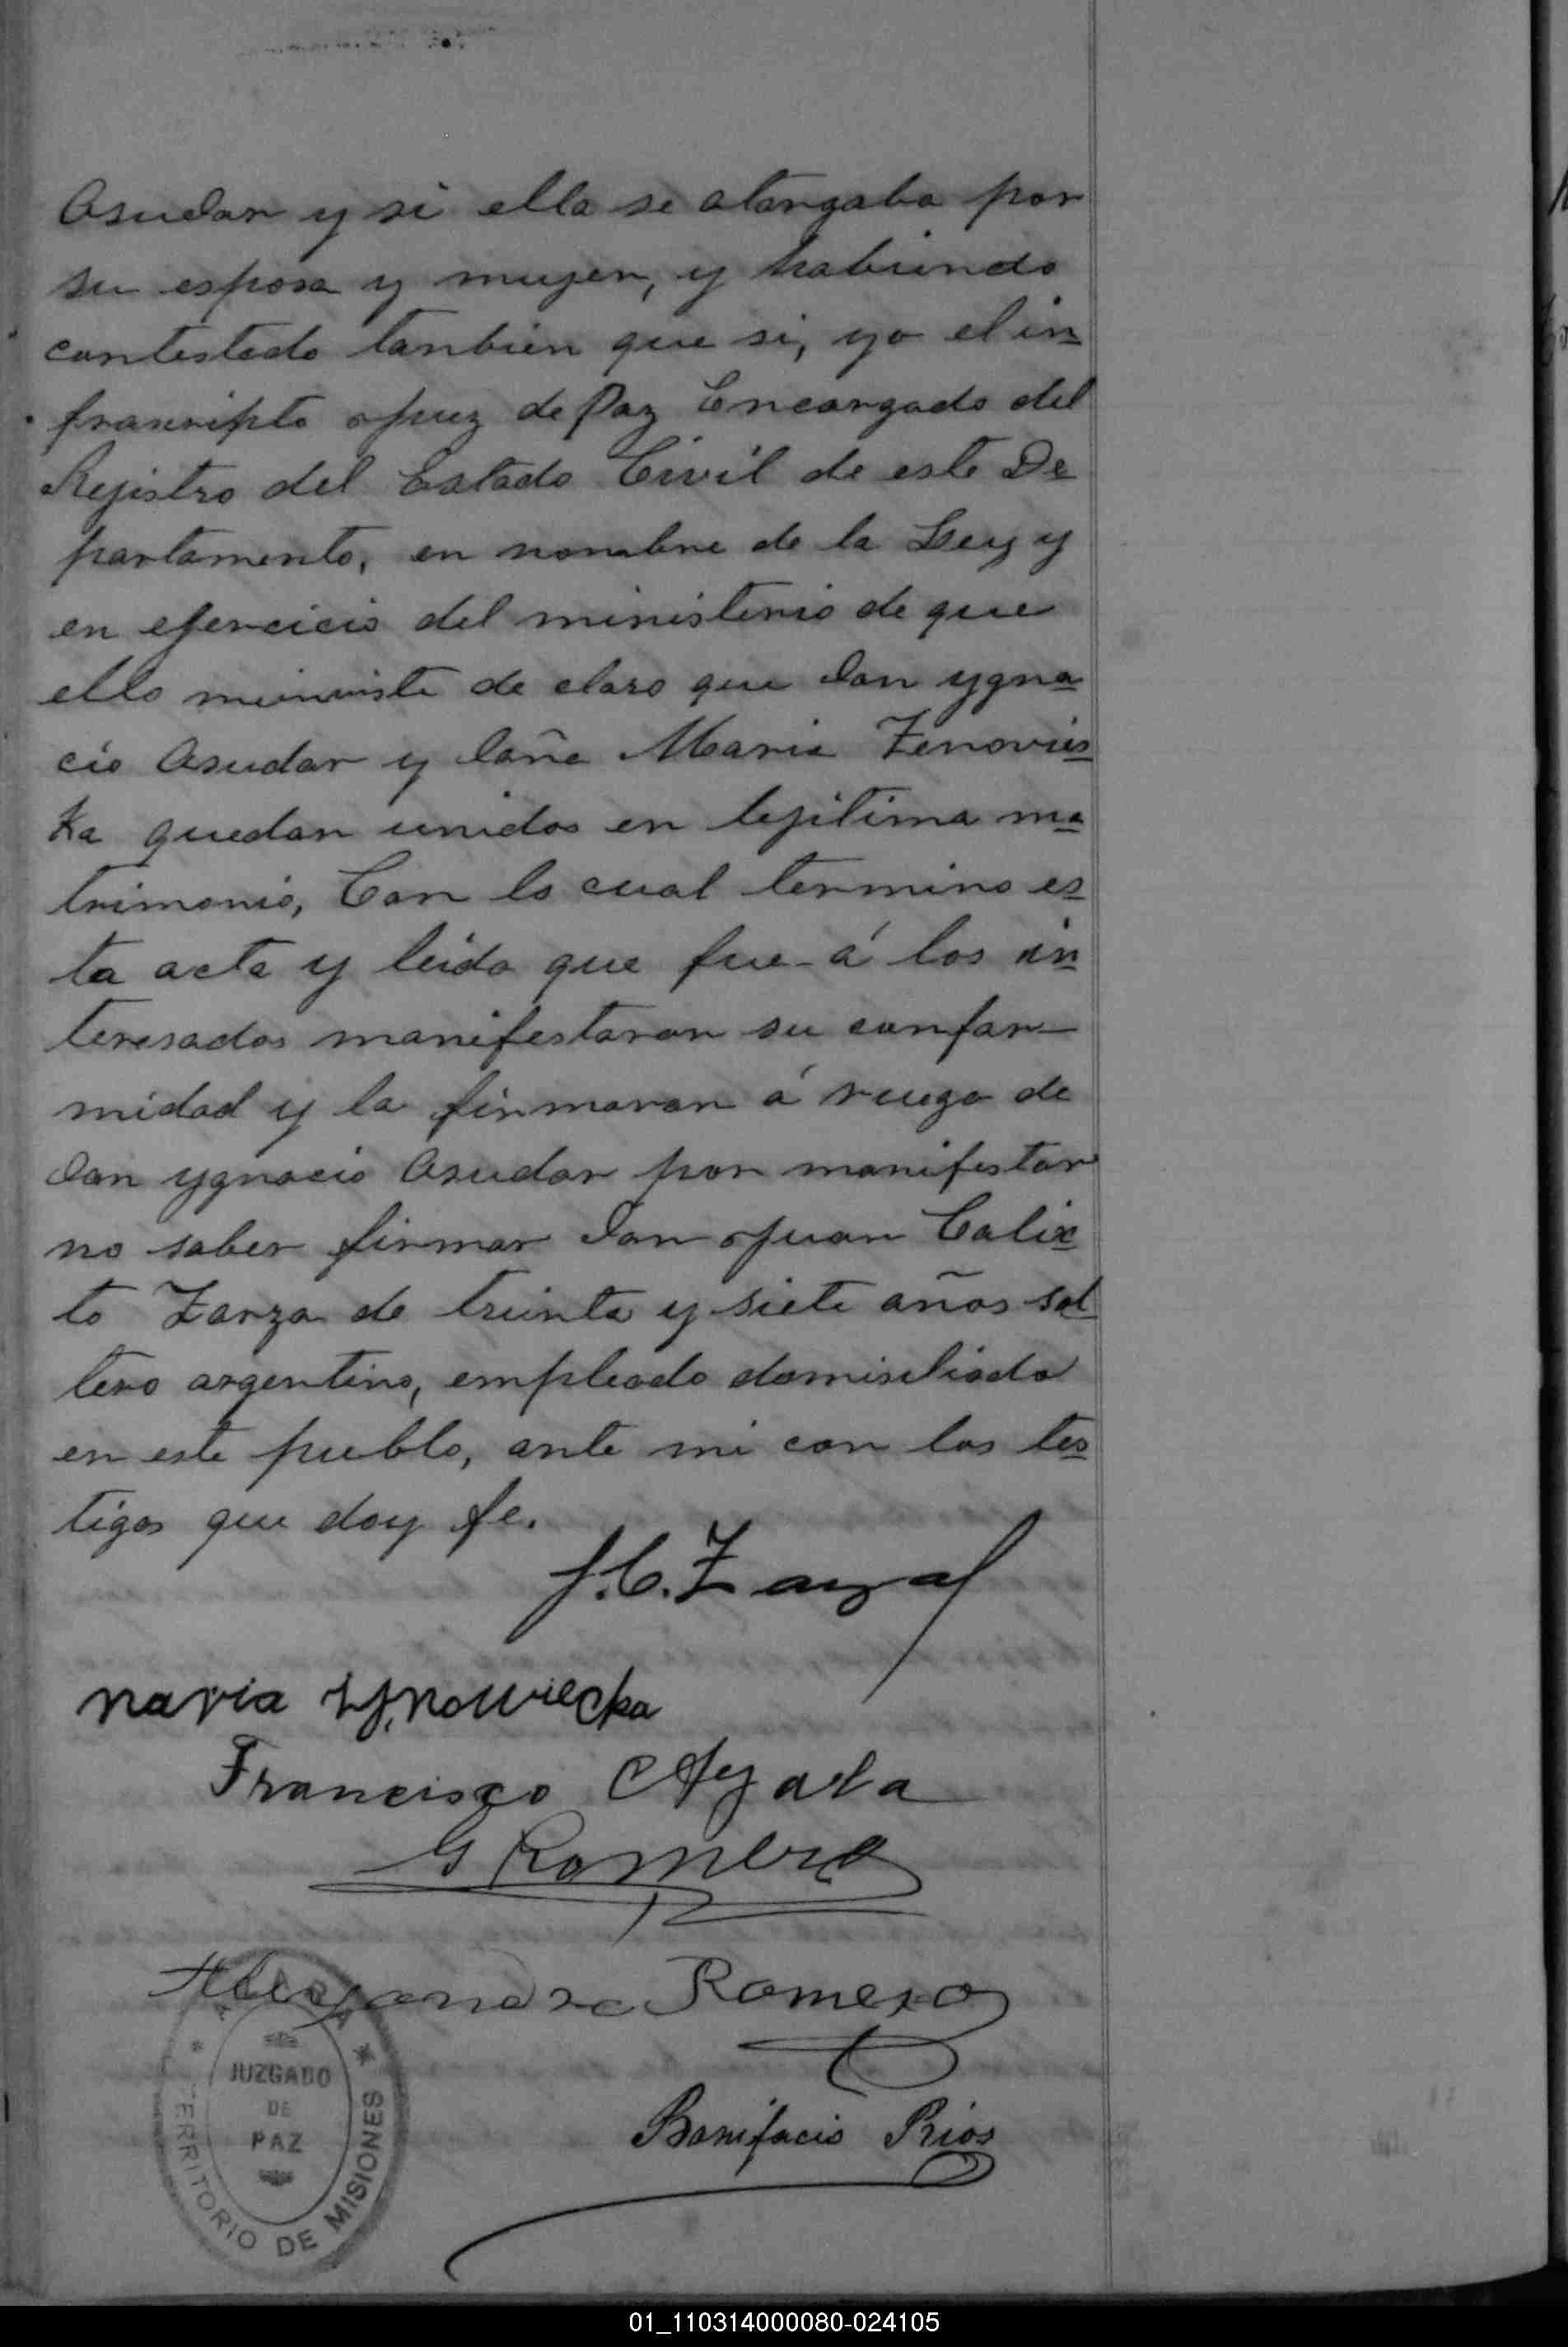 Asudar y si ella se otorgaba por
su esposa y mujer, y habiendo
contestado tanbien que si, yo el in
frascripto Juez de Paz Encargado del
Rejistro del Estado Civil de este De
partamento, en nombre de la Ley y
en ejercicio del ministerio de que
ello de claro que Don ygna
cio Asudar y Doña Maria Zenovies
Ka quedan unidos en lejitima ma
trimonio, Con lo cual termino es
ta acta y leida que fue á los in
teresados manifestaron su confor
midad y la firmaron á ruego de
Don ygnacio Asudar por manifestar
no saber firmar Don Juan Calix
to Zarza de treinta y siete años sol
tero argentino, empleado domisiliado
en este pueblo, ante mi con los tes
tigos que doy fe.
J.C. Zarza
Maria
Francisco Ayala
G Romero
Alejandro Romero
JUZGADO
DE
PAZ
TERRITORIO DE MISIONES
Bonifacio Rios
01_110314000080-024105